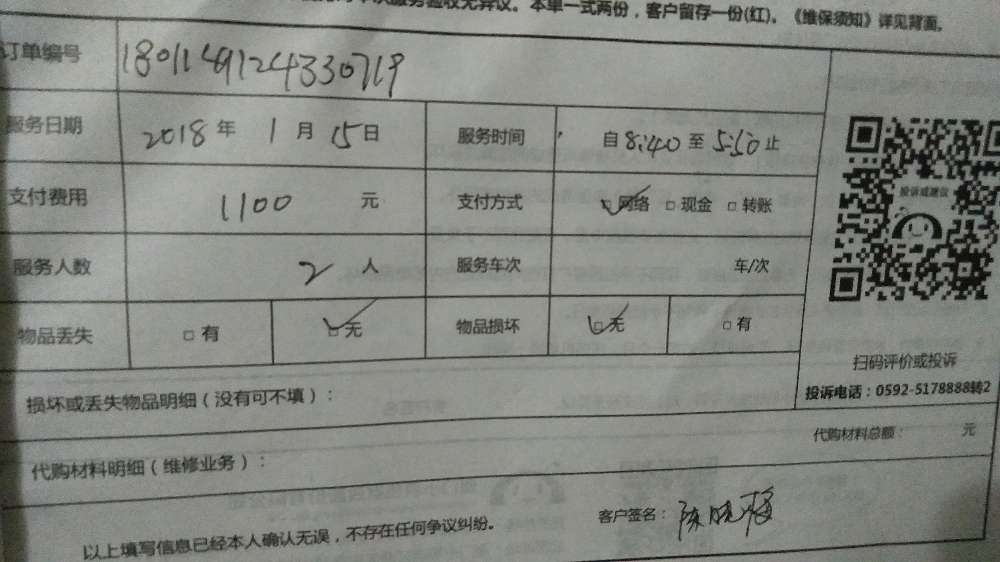 本次服务验收无异议。本单一式两份，客户留存一份(红)。《维保须知》详见背面。
订单编号 1801149124330719
服务日期 2018年 1月 15日 服务时间 自8:40至5:50止
支付费用 1100 元 支付方式 □网络 □现金 □转账
投诉或建议
服务人数 2人 服务车次 车/次
物品丢失 □有 □无 物品损坏 □无 □有
扫码评价或投诉
投诉电话：0592-5178888转2
损坏或丢失物品明细（没有可不填）：
代购材料总额： 元
代购材料明细（维修业务）：
客户签名：陈晓梅
以上填写信息已经本人确认无误，不存在任何争议纠纷。